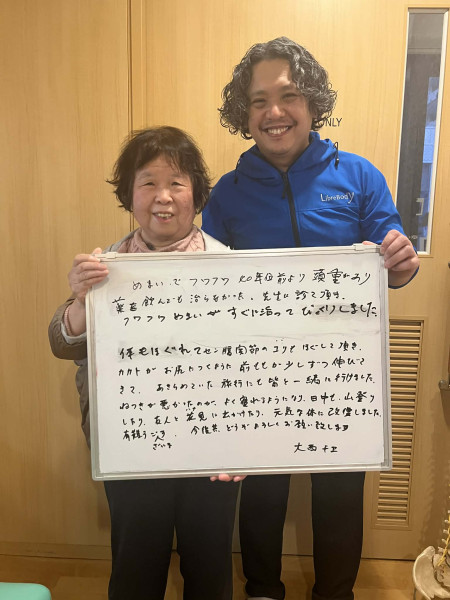 NLY
LibreBody
めまいでフワフワ 20年以前より 頭重があり
薬を飲んでも治らなかった。先生に診て頂き、
フワフワめまいがすぐに治ってびっくりしました
体もほぐれてセン腸関節のコリもほぐして頂き、
カカトがお尻につくように 前もモモが少しずつ伸びて
きて、あきらめていた旅行にも皆と一緒に行けました。
ねつきが悪かったのが、よく寝れるようになり、日中も、山登り
したり、友人と花見に出かけたり、元気な体に改善しました。
有難うございます 今後共、どうぞよろしくお願い致します
大西